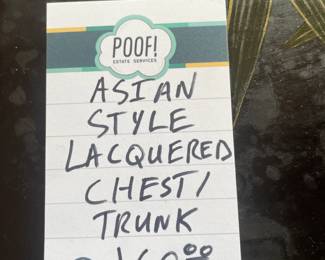 POOF!
ESTATE SERVICES
ASIAN
STYLE
LACQUERED
CHEST/
TRUNK